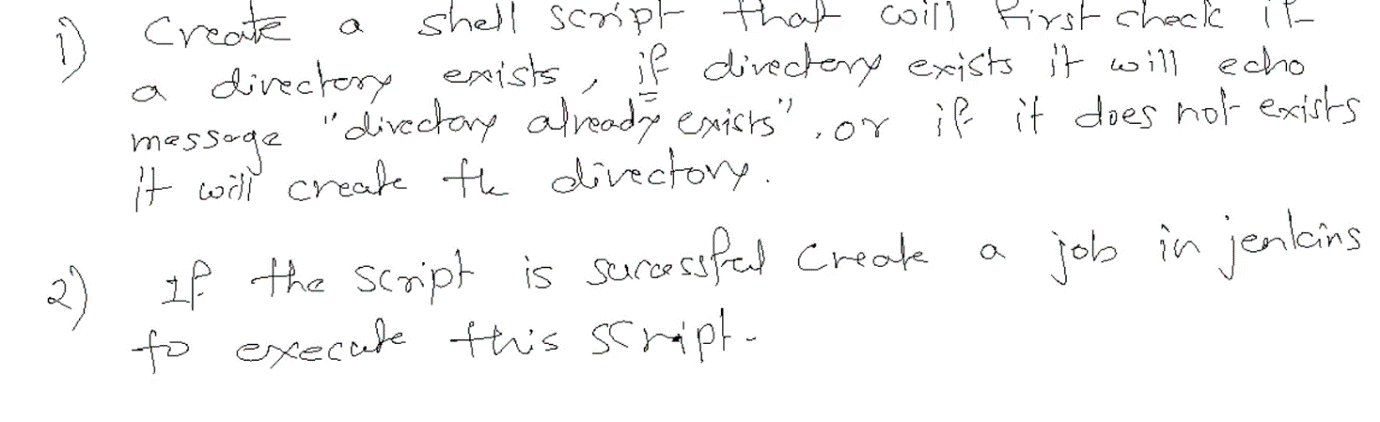 1) Create a shell script that will first check if
a directory exists, if directory exists it will echo
message "directory already exists", or if it does not exists
it will create the directory.
2) If the script is successful create a job in jenkins
to execute this script.